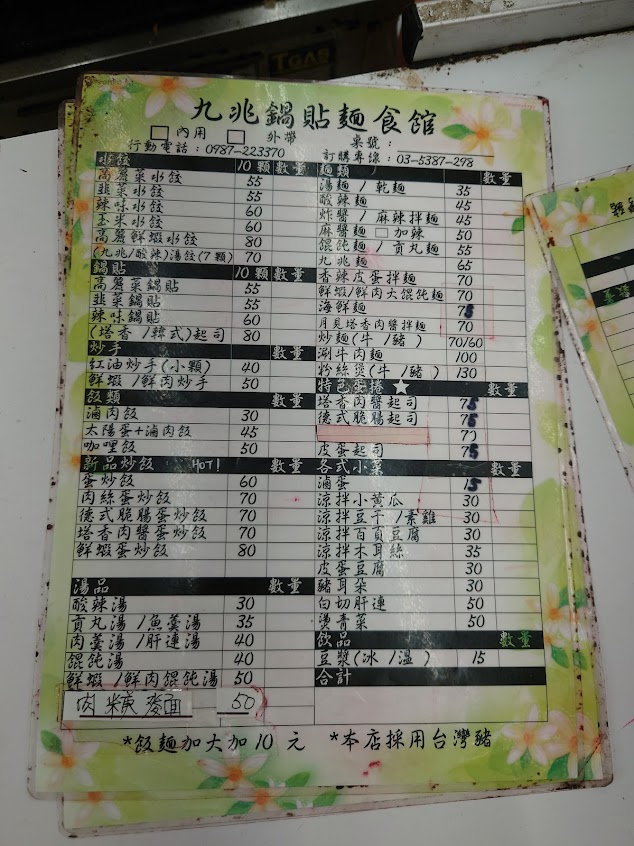 TGAS
九兆鍋貼麵食館
內用 外帶 桌號：
行動電話：0987-223370 訂購專線：03-5387-298
水餃 10顆 數量
高麗菜水餃 55
韭菜水餃 55
辣味水餃 60
玉米水餃 60
高麗鮮蝦水餃 80
(九兆/酸辣)湯餃(7顆) 70
鍋貼 10顆 數量
高麗菜鍋貼 55
韭菜鍋貼 55
辣味鍋貼 60
(塔香/韓式)起司 80
炒手 數量
紅油炒手(小顆) 40
鮮蝦/鮮肉炒手 50
飯類 數量
滷肉飯 30
太陽蛋+滷肉飯 45
咖哩飯 50
新品炒飯 HOT! 數量
蛋炒飯 60
肉絲蛋炒飯 70
德式脆腸蛋炒飯 70
塔香肉醬蛋炒飯 70
鮮蝦蛋炒飯 80
湯品 數量
酸辣湯 30
貢丸湯/魚羹湯 35
肉羹湯/肝連湯 40
餛飩湯 40
鮮蝦/鮮肉餛飩湯 50
肉粳麥面 50
麵類 數量
湯麵/乾麵 35
酸辣麵 45
炸醬/麻辣拌麵 45
麻醬麵 加辣 50
餛飩麵/貢丸麵 55
九兆麵 65
香辣皮蛋拌麵 70
鮮蝦/鮮肉大餛飩麵 70
海鮮麵 75
月見塔香肉醬拌麵 70
炒麵(牛/豬) 70/60
涮牛肉麵 100
粉絲煲(牛/豬) 130
特色蛋捲 ★ 數量
塔香肉醬起司 75
德式脆腸起司 75
70
皮蛋起司 75
各式小菜 數量
滷蛋 15
涼拌小黃瓜 30
涼拌豆干/素雞 30
涼拌百頁豆腐 30
涼拌木耳絲 35
皮蛋豆腐 30
豬耳朵 30
白切肝連 50
燙青菜 50
飲品 數量
豆漿(冰/溫) 15
合計
*飯麵加大加10元 *本店採用台灣豬
數量